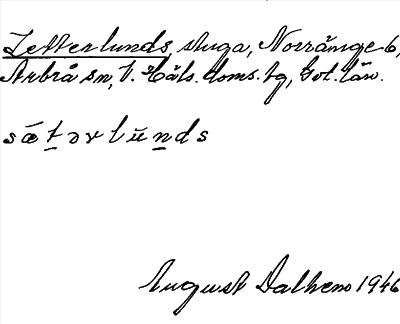 Zetterlunds stuga, Norränge 6,
Arbrå sn, V. Häls. doms. tg, Gvl. län.
sætərlŭnds
August Dalhem 1946